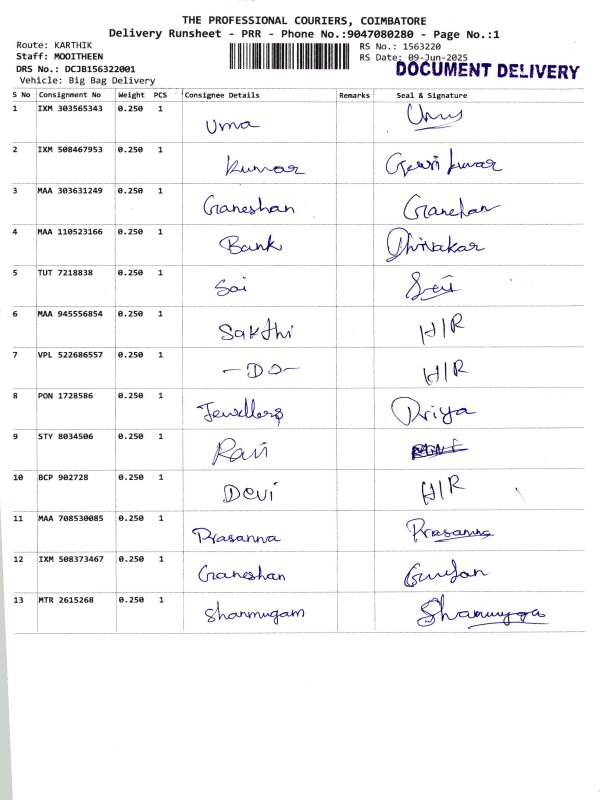 THE PROFESSIONAL COURIERS, COIMBATORE
Delivery Runsheet - PRR - Phone No.:9047080280 - Page No.:1
Route: KARTHIK
Staff: MOOITHEEN
DRS No.: DCJB156322001
Vehicle: Big Bag Delivery
RS No.: 1563220
RS Date: 09-Jun-2025
DOCUMENT DELIVERY
S No Consignment No Weight PCS Consignee Details Remarks Seal & Signature
1 IXM 303565343 0.250 1 Uma
2 IXM 508467953 0.250 1 Kumar Gowri kumar
3 MAA 303631249 0.250 1 Ganeshan Ganeshan
4 MAA 110523166 0.250 1 Bank Dhivakar
5 TUT 7218838 0.250 1 Sai Sai
6 MAA 945556854 0.250 1 Sakthi H/R
7 VPL 522686557 0.250 1 -DO- H/R
8 PON 1728586 0.250 1 Jewellers Priya
9 STY 8034506 0.250 1 Ravi
10 BCP 902728 0.250 1 Devi H/R
11 MAA 708530085 0.250 1 Prasanna Prasanna
12 IXM 508373467 0.250 1 Ganeshan
13 MTR 2615268 0.250 1 Shanmugam